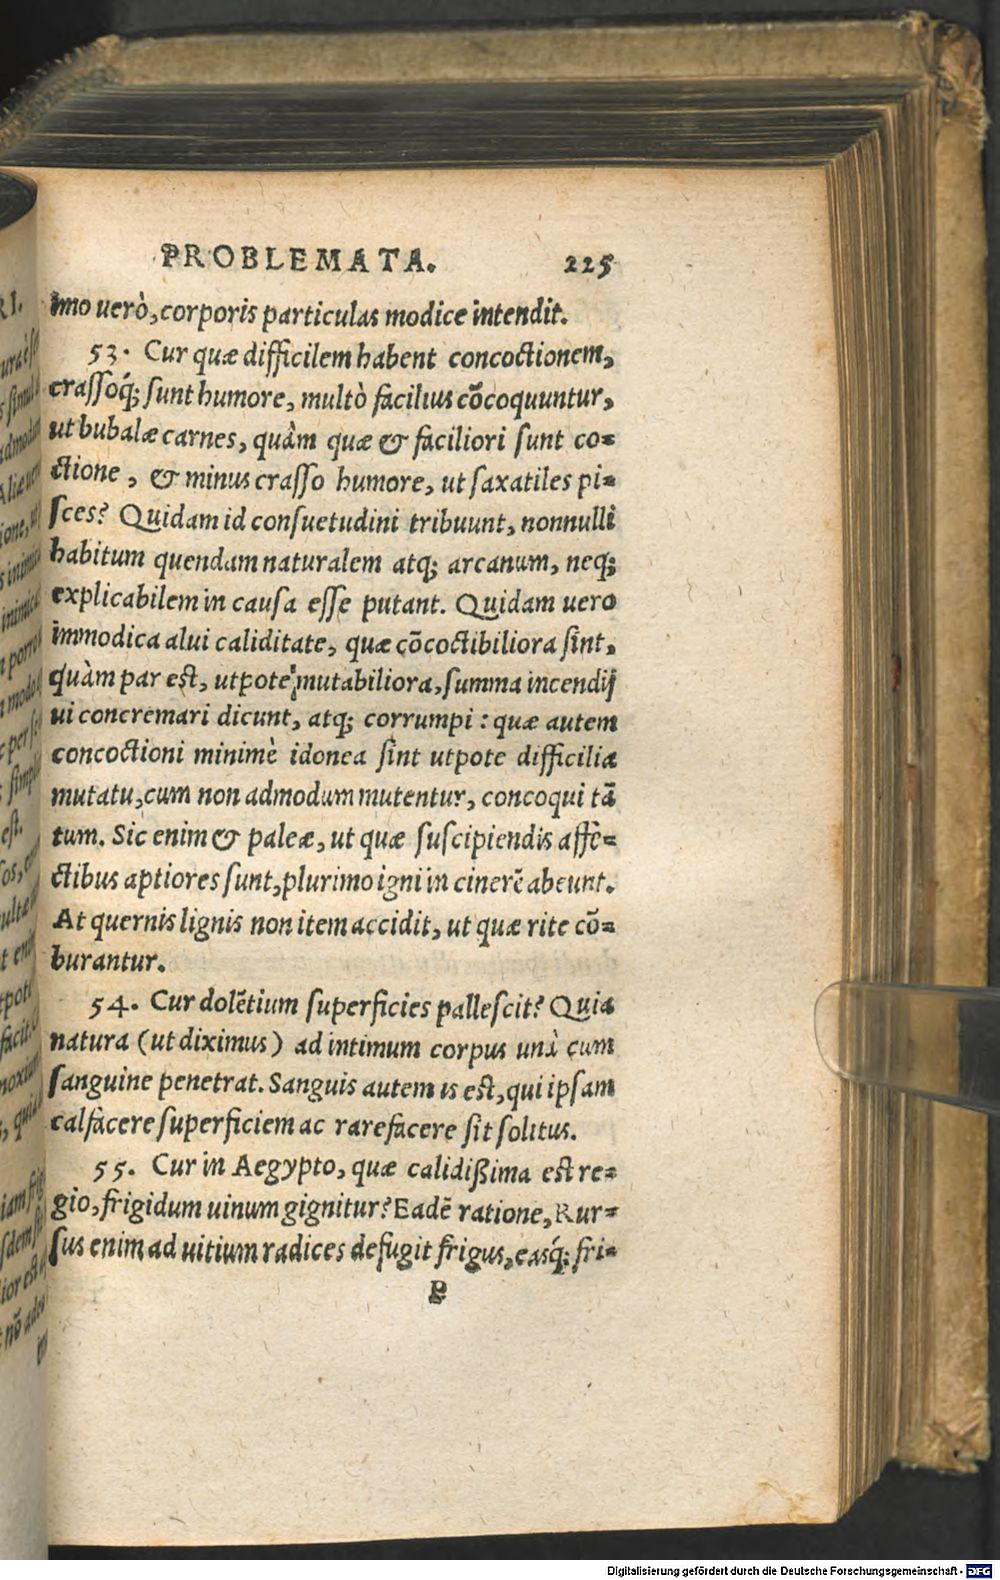 PROBLEMATA. 225
imo uerò, corporis particulas modice intendit.
53. Cur quæ difficilem habent concoctionem,
crassoq́; sunt humore, multò facilius cõcoquuntur,
ut bubalæ carnes, quàm quæ & faciliori sunt co=
ctione, & minus crasso humore, ut saxatiles pi=
sces? Quidam id consuetudini tribuunt, nonnulli
habitum quendam naturalem atq; arcanum, neq;
explicabilem in causa esse putant. Quidam uero
immodica alui caliditate, quæ cõcoctibiliora sint,
quàm par est, utpote mutabiliora, summa incendij
ui concremari dicunt, atq; corrumpi: quæ autem
concoctioni minimè idonea sint utpote difficilia
mutatu, cum non admodum mutentur, concoqui tã
tum. Sic enim & paleæ, ut quæ suscipiendis affe=
ctibus aptiores sunt, plurimo igni in cinerẽ abeunt.
At quernis lignis non item accidit, ut quæ rite cõ=
burantur.
54. Cur dolẽtium superficies pallescit? Quia
natura (ut diximus) ad intimum corpus unà cum
sanguine penetrat. Sanguis autem is est, qui ipsam
calfacere superficiem ac rarefacere sit solitus.
55. Cur in Aegypto, quæ calidißima est re=
gio, frigidum uinum gignitur? Eadẽ ratione, Rur=
sus enim ad uitium radices defugit frigus, easq́; fri=
P
Digitalisierung gefördert durch die Deutsche Forschungsgemeinschaft - DFG